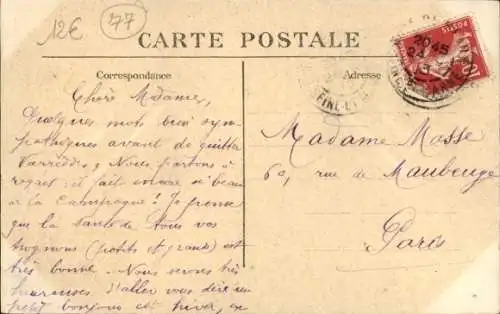 12€
77
CARTE POSTALE
Correspondance
Adresse
Chère Madame,
Quelques mots bien sym-
pathiques avant de quitter
Varreddes, Nous partons à
regret; il fait encore si beau
à la Campagne! Je pense
que la santé de tous vos
trognons (petits et grands) est
très bonne. Nous serons très
heureuses d'aller vous dire un
petit bonjour cet hiver, en
Madame Masse
60, rue de Maubeuge
Paris
POSTES
10
20 45
SEINE-ET-M